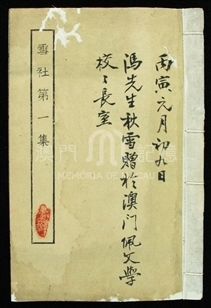 丙寅元月初九日
馮先生秋雪贈於澳门佩文學
校之長室
雪社第一集
澳門記憶
MEMÓRIA DE MACAU